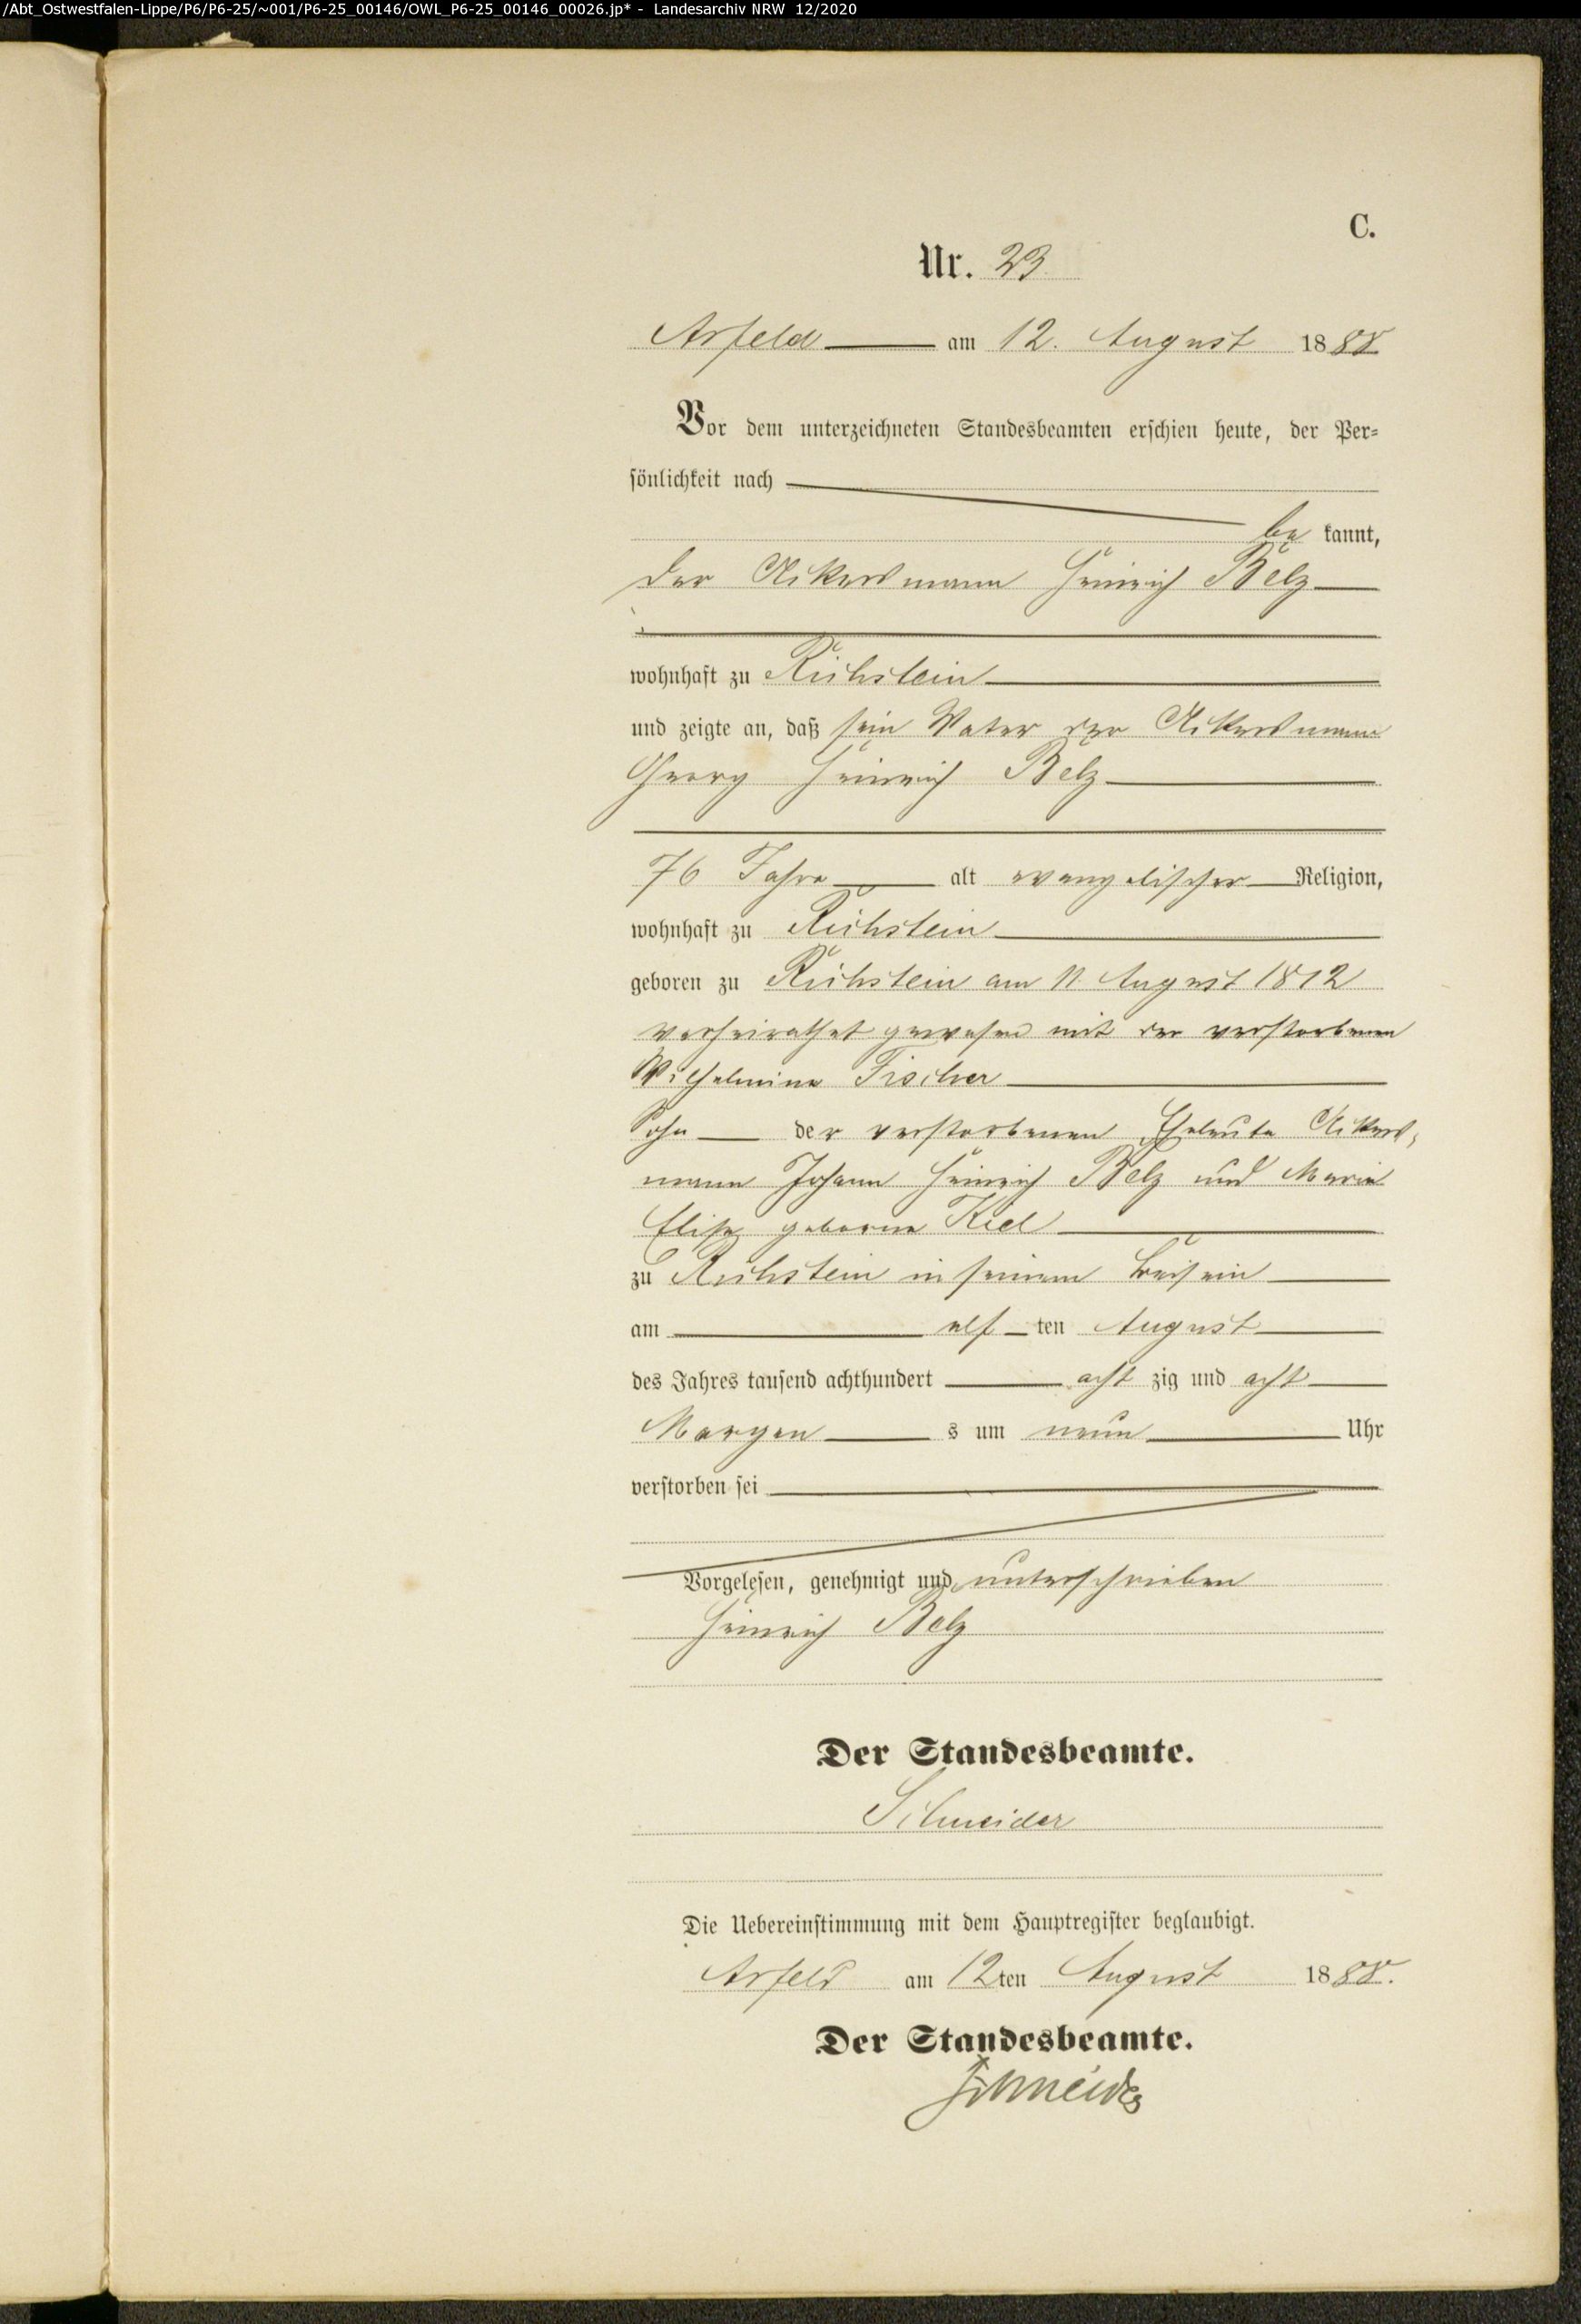 /Abt_Ostwestfalen-Lippe/P6/P6-25/~001/P6-25_00146/OWL_P6-25_00146_00026.jp* - Landesarchiv NRW 12/2020
C.
Nr. 23
Arfeld am 12. August 1888
Vor dem unterzeichneten Standesbeamten erschien heute, der Per-
sönlichkeit nach
be kannt,
der Ackersmann Heinrich Belz
wohnhaft zu Richstein
und zeigte an, daß sein Vater der Ackersmann
Georg Heinrich Belz
76 Jahre alt evangelischer Religion,
wohnhaft zu Richstein
geboren zu Richstein am 11. August 1812
verheirathet gewesen mit der verstorbenen
Wilhelmine Fischer
Sohn der verstorbenen Eheleute Ackers-
mann Johann Heinrich Belz und Marie
Elise geborne Kiel
zu Richstein in seinem Beisein
am elf ten August
des Jahres tausend achthundert acht zig und acht
Morgen s um neun Uhr
verstorben sei
Vorgelesen, genehmigt und unterschrieben
Heinrich Belz
Der Standesbeamte.
Schneider
Die Uebereinstimmung mit dem Hauptregister beglaubigt.
Arfeld am 12ten August 1888.
Der Standesbeamte.
Schneider